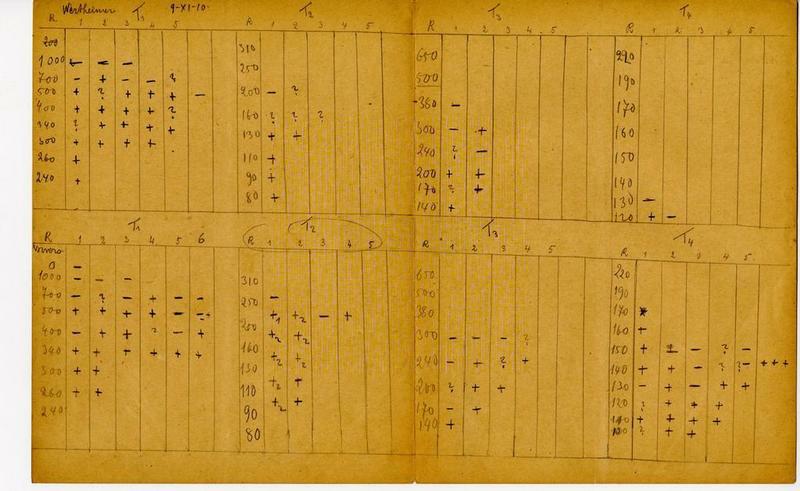 Wertheimer T1 9-XI-10- T2 T3 T4
R 1 2 3 4 5 R 1 2 3 4 5 R 1 2 3 4 5 R 1 2 3 4 5
200 310 650 220
1000 — — — 250 500 190
700 — + — — ? 200 — ? 380 — 170
500 + ? + + + — 160 ? ? ? 300 — + 160
400 + + + + ? 130 + + 240 ? — 150
340 ? + + + + 110 + 200 + + 140
300 + + + + 90 + 170 ? + 130 —
260 + 80 + 140 + 120 + —
240 +
T1 T2 T3 T4
R 1 2 3 4 5 6 R 1 2 3 4 5 R 1 2 3 4 5 R 1 2 3 4 5
0 — 310 650 220
1000 — — — 250 — 500 190
700 — ? — + — — 200 +2 +2 — + 380 170 +
500 + + + + + 160 +2 +2 300 — — — ? 160 +
400 + + + ? — + 130 +2 +2 240 — + ? + 150 + — — ? —
340 + + + + + 110 +2 + 200 ? + + 140 + + — ? ? + + +
300 + + 90 +2 + 170 — + 130 — + + + +
260 + + 80 140 + 120 ? + + +
240 110 + + + +
100 ? + +